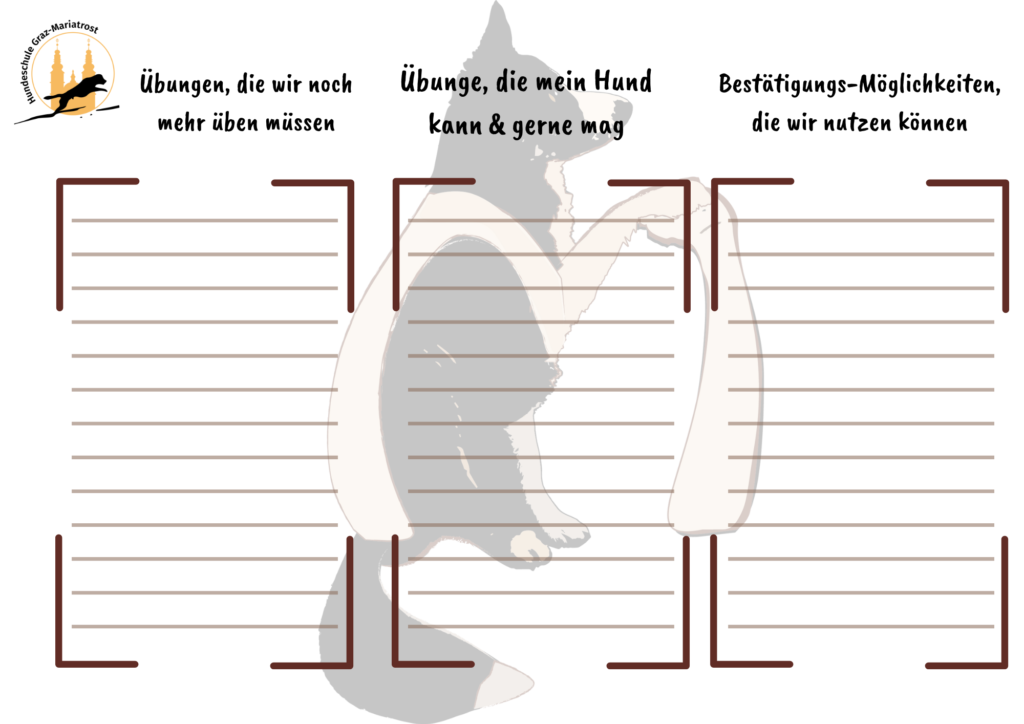 Hundeschule Graz-Mariatrost
Übungen, die wir noch
mehr üben müssen
Übunge, die mein Hund
kann & gerne mag
Bestätigungs-Möglichkeiten,
die wir nutzen können